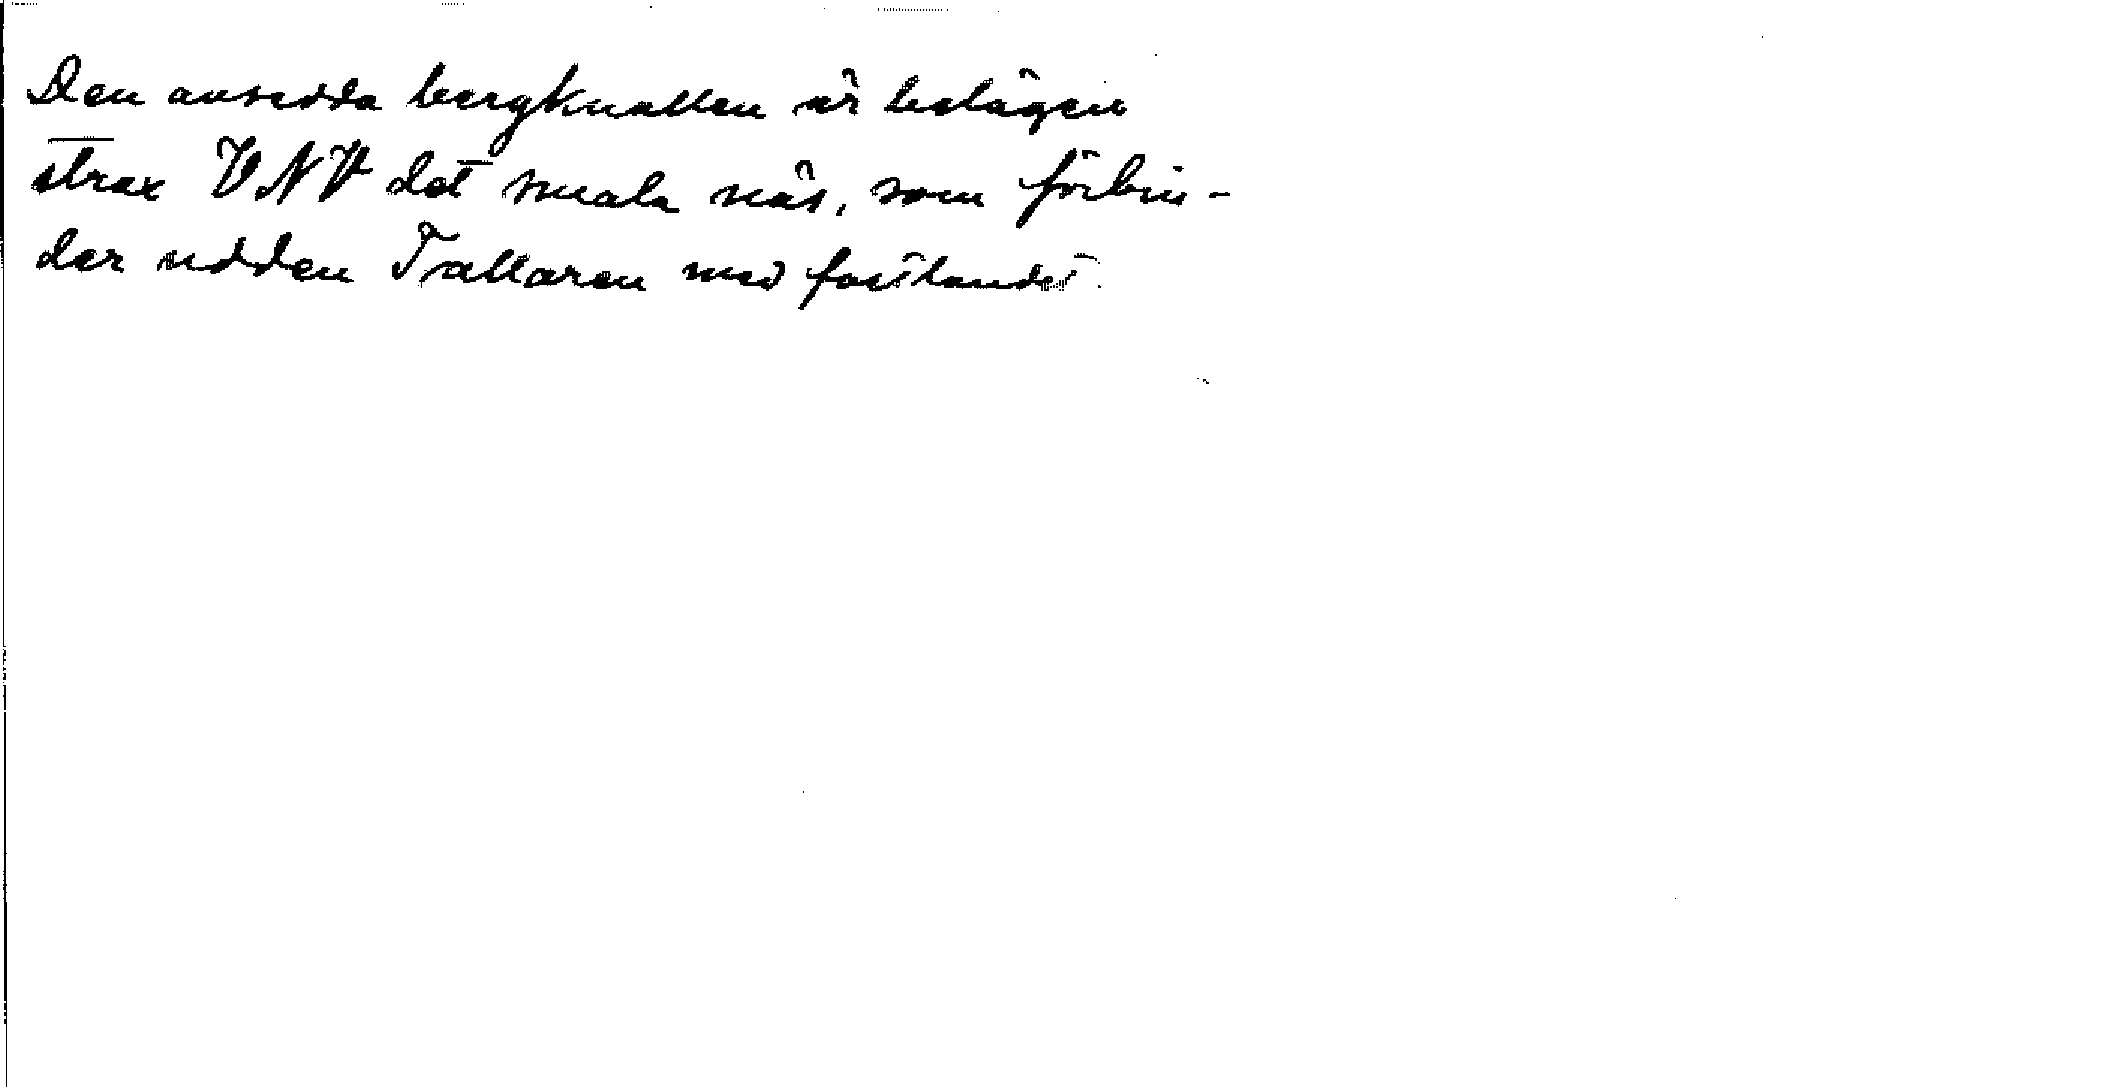 Den avsedda bergknallen är belägen
strax VNV det smala näs, som förbin-
der udden Tallaren med fastlandet.